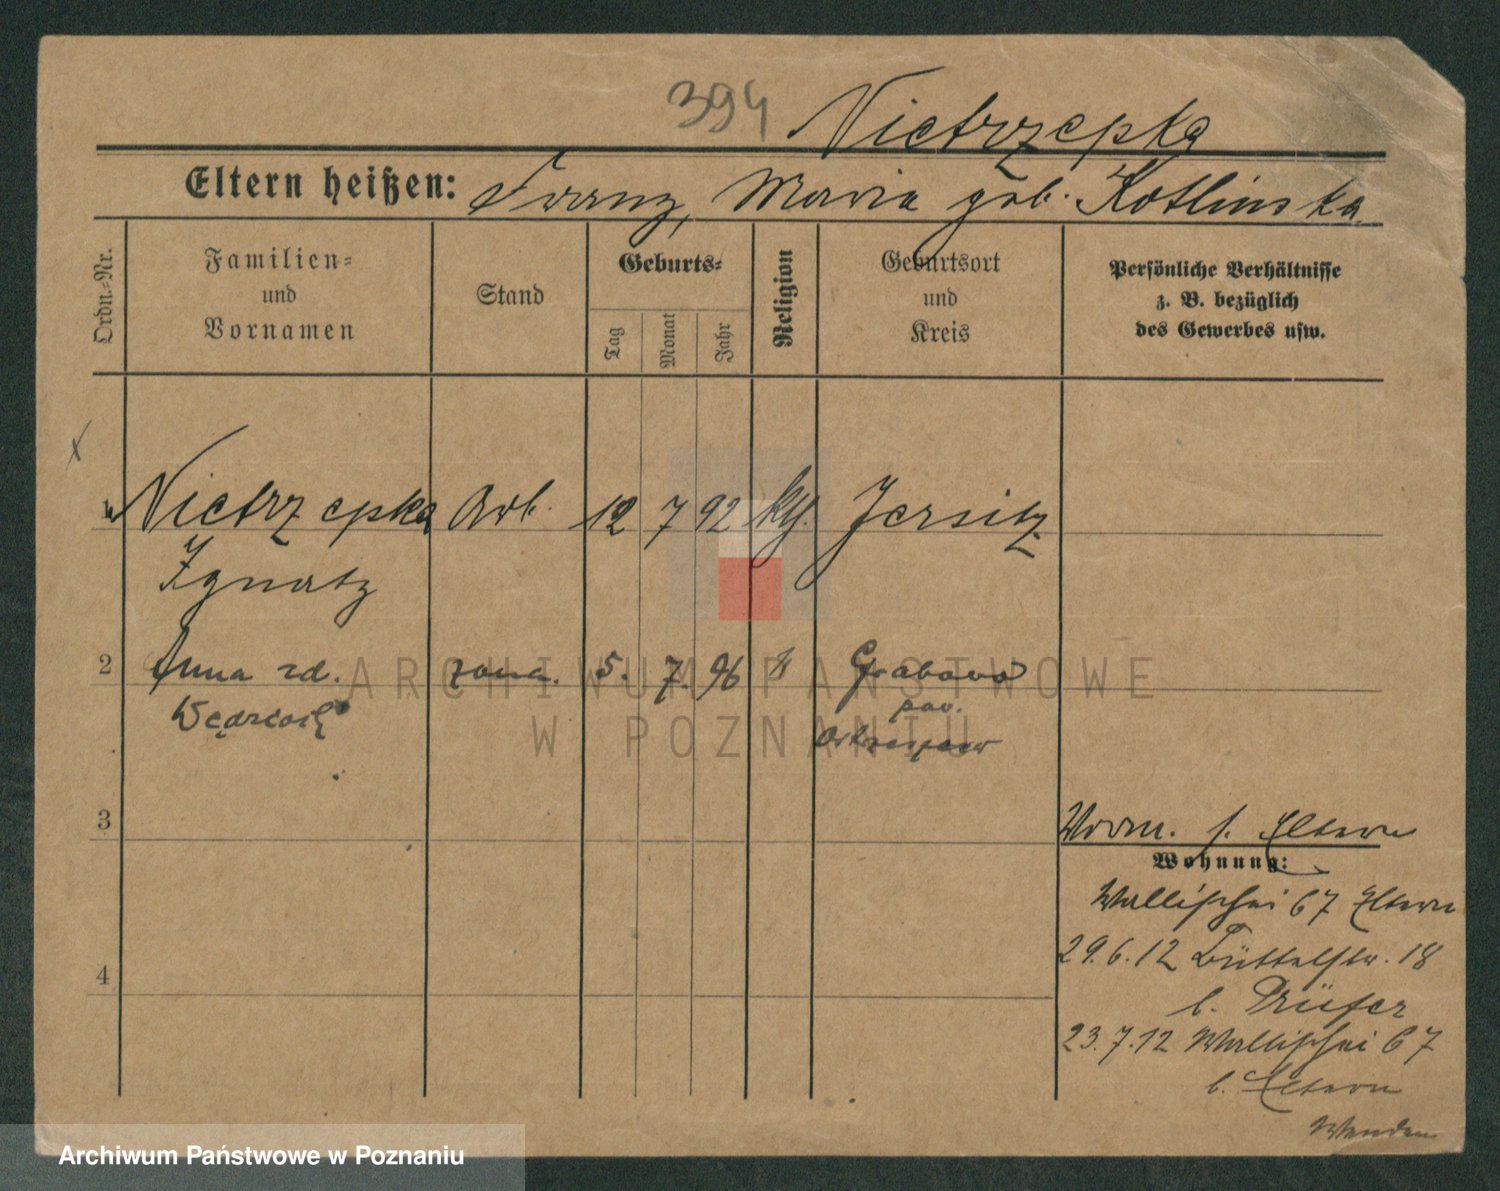 394 Nietrzepka
Eltern heißen: Franz, Maria geb. Kotlinska
Ordn.-Nr.
Familien-
und
Vornamen
Stand
Geburts-
Tag
Monat
Jahr
Religion
Geburtsort
und
Kreis
Persönliche Verhältnisse
z. B. bezüglich
des Gewerbes usw.
x
1 Nietrzepka Arb. 12 7 92 kth. Jersitz
Ignatz
2 Anna zd. żona. 5. 7. 96 Grabowo
pow.
3
Vorm. s. Eltern
Wohnung:
Wallischei 67 Eltern
29.6.12 Büttelstr. 18
b. Prüfer
4
23.7.12 Wallischei 67
b. Eltern
Wenden
ARCHIWUM PAŃSTWOWE
W POZNANIU
Archiwum Państwowe w Poznaniu